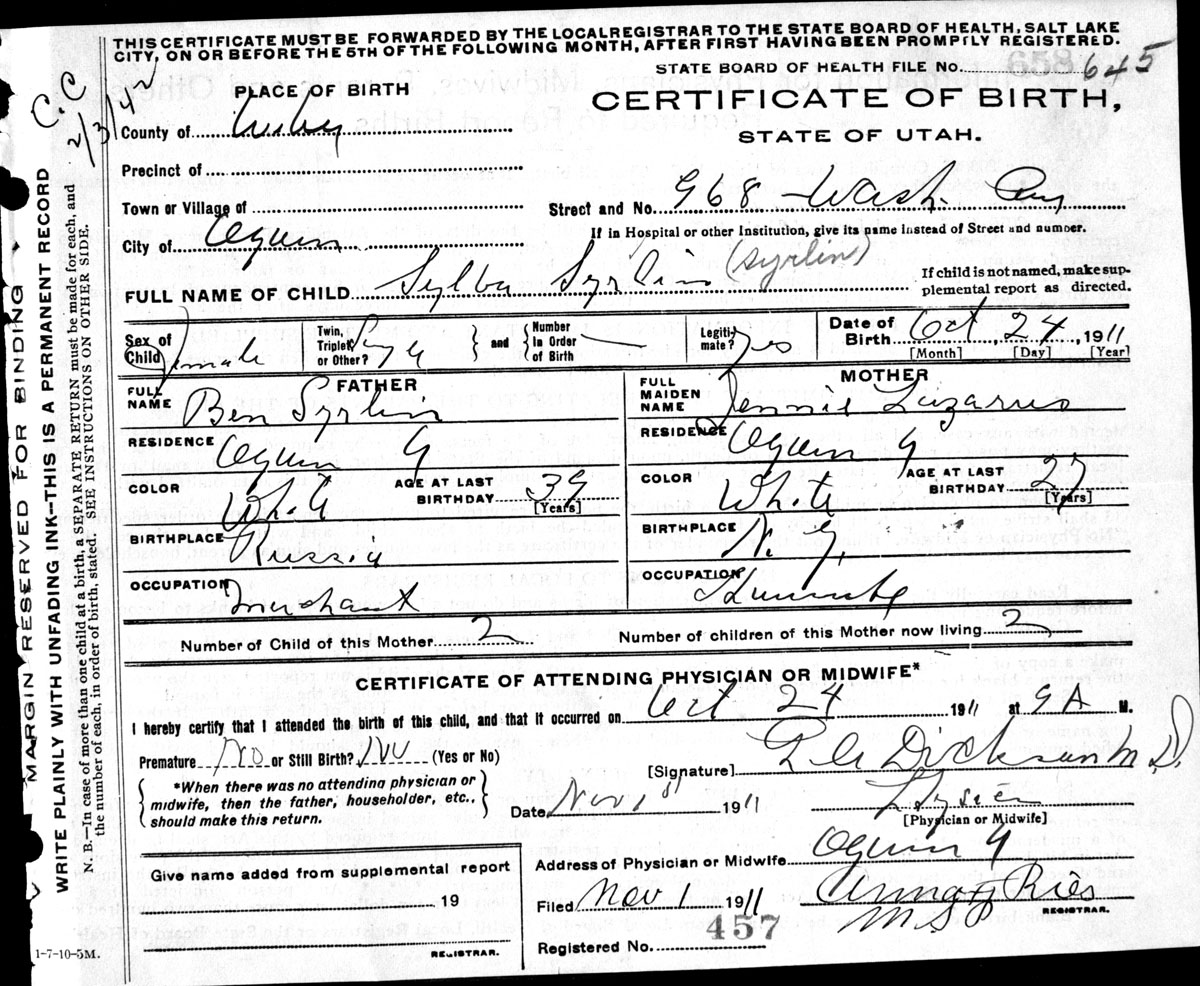 THIS CERTIFICATE MUST BE FORWARDED BY THE LOCALREGISTRAR TO THE STATE BOARD OF HEALTH, SALT LAKE
CITY, ON OR BEFORE THE 5TH OF THE FOLLOWING MONTH, AFTER FIRST HAVING BEEN PROMPTLY REGISTERED.
STATE BOARD OF HEALTH FILE NO. 645
C.C
2/3/42
PLACE OF BIRTH
CERTIFICATE OF BIRTH,
STATE OF UTAH.
County of
Precinct of
Town or Village of
Street and No. 968 Wash. Av
City of
If in Hospital or other Institution, give its name instead of Street and number.
FULL NAME OF CHILD Sylba Syrlin (Syrlin)
If child is not named, make sup-
plemental report as directed.
Sex of Child Female
Twin, Triplet, or Other?
and
Number In Order of Birth
Legiti-mate? Yes
Date of Birth Oct 24, 1911
[Month] [Day] [Year]
FATHER
FULL NAME Ben Syrlin
RESIDENCE
COLOR White
AGE AT LAST BIRTHDAY 39
[Years]
BIRTHPLACE Russia
OCCUPATION Merchant
MOTHER
FULL MAIDEN NAME Jennie Lazarus
RESIDENCE
COLOR White
AGE AT LAST BIRTHDAY 27
[Years]
BIRTHPLACE N. Y.
OCCUPATION
Number of Child of this Mother 2
Number of children of this Mother now living 2
CERTIFICATE OF ATTENDING PHYSICIAN OR MIDWIFE*
I hereby certify that I attended the birth of this child, and that it occurred on Oct 24 1911 at 9 A M.
Premature No or Still Birth? No (Yes or No)
*When there was no attending physician or
midwife, then the father, householder, etc.,
should make this return.
[Signature] Dickson M.D.
Date Nov 1st 1911
[Physician or Midwife]
Give name added from supplemental report
19
REGISTRAR.
Address of Physician or Midwife
Filed Nov 1 1911
Anna Ries
REGISTRAR.
Registered No. 457
1-7-10-5M.
MARGIN RESERVED FOR BINDING
WRITE PLAINLY WITH UNFADING INK—THIS IS A PERMANENT RECORD
N. B.—In case of more than one child at a birth, a SEPARATE RETURN must be made for each, and
the number of each, in order of birth, stated. SEE INSTRUCTIONS ON OTHER SIDE.